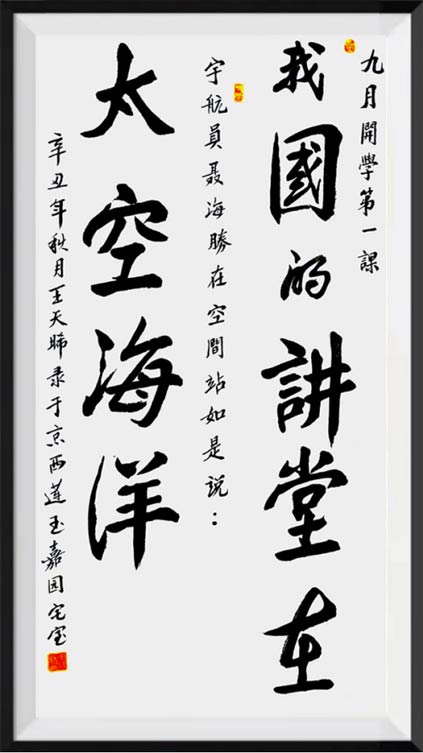 九月開學第一課
我國的讲堂在
宇航員聂海勝在空間站如是説：
太空海洋
辛丑年秋月王天晞录于京西莲玉嘉园宅室